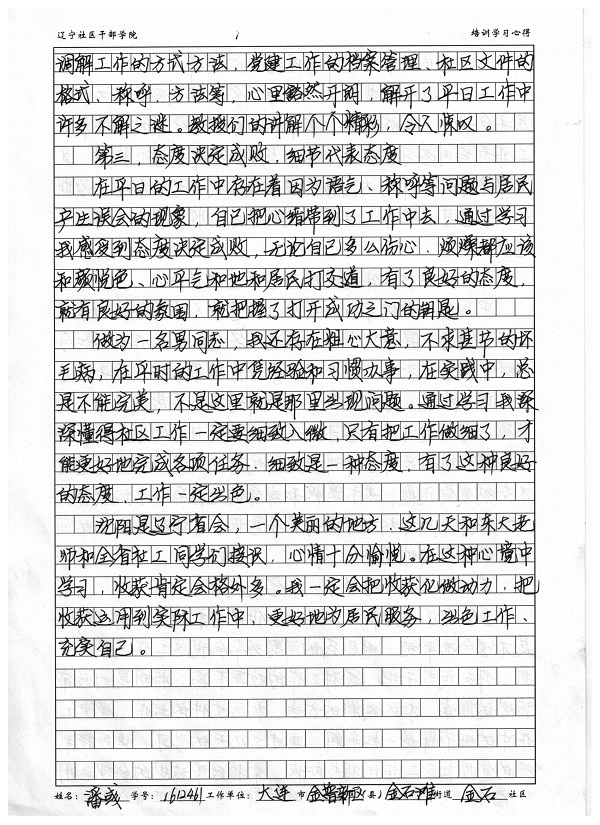 辽宁社区干部学院 1 培训学习心得
调解工作的方式方法，党建工作的档案管理、社区文件的
格式、称呼、方法等，心里豁然开朗，解开了平日工作中
许多不解之谜。教授们的讲解个个精彩，令人惊叹。
第三，态度决定成败，细节代表态度
在平日的工作中存在着因为语气、称呼等问题与居民
产生误会的现象，自己把心绪带到了工作中去，通过学习
我感受到态度决定成败，无论自己多么伤心、烦燥都应该
和颜悦色、心平气和地和居民打交道，有了良好的态度，
就有良好的氛围，就把握了打开成功之门的钥匙。
做为一名男同志，我还存在粗心大意，不求甚节的坏
毛病，在平时的工作中凭经验和习惯办事，在实践中，总
是不能完美，不是这里就是那里出现问题。通过学习我深
深懂得社区工作一定要细致入微，只有把工作做细了，才
能更好地完成各项任务。细致是一种态度，有了这种良好
的态度，工作一定出色。
沈阳是辽宁省会，一个美丽的地方，这几天和东大老
师和全省社工同学们接识，心情十分愉悦。在这种心境中
学习，收获肯定会格外多。我一定会把收获化做动力，把
收获运用到实际工作中，更好地为居民服务，出色工作、
充实自己。
姓名：潘 学号：1612461 工作单位：大连 市 金普新区(县) 金石滩 街道 金石 社区